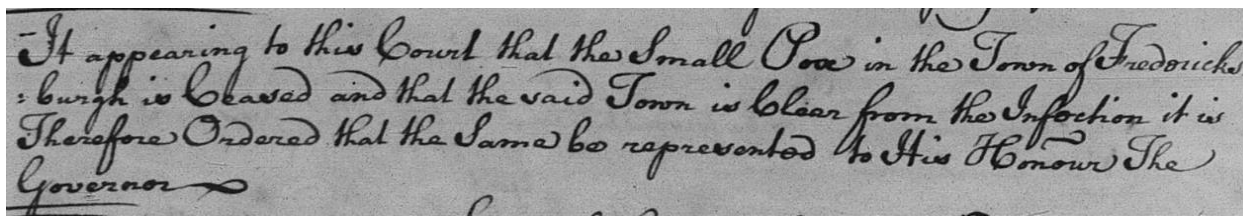 It appearing to this Court that the Small Pox in the Town of Fredericks
:burgh is Ceased and that the said Town is Clear from the Infection it is
Therefore Ordered that the Same be represented to His Honour The
Governor